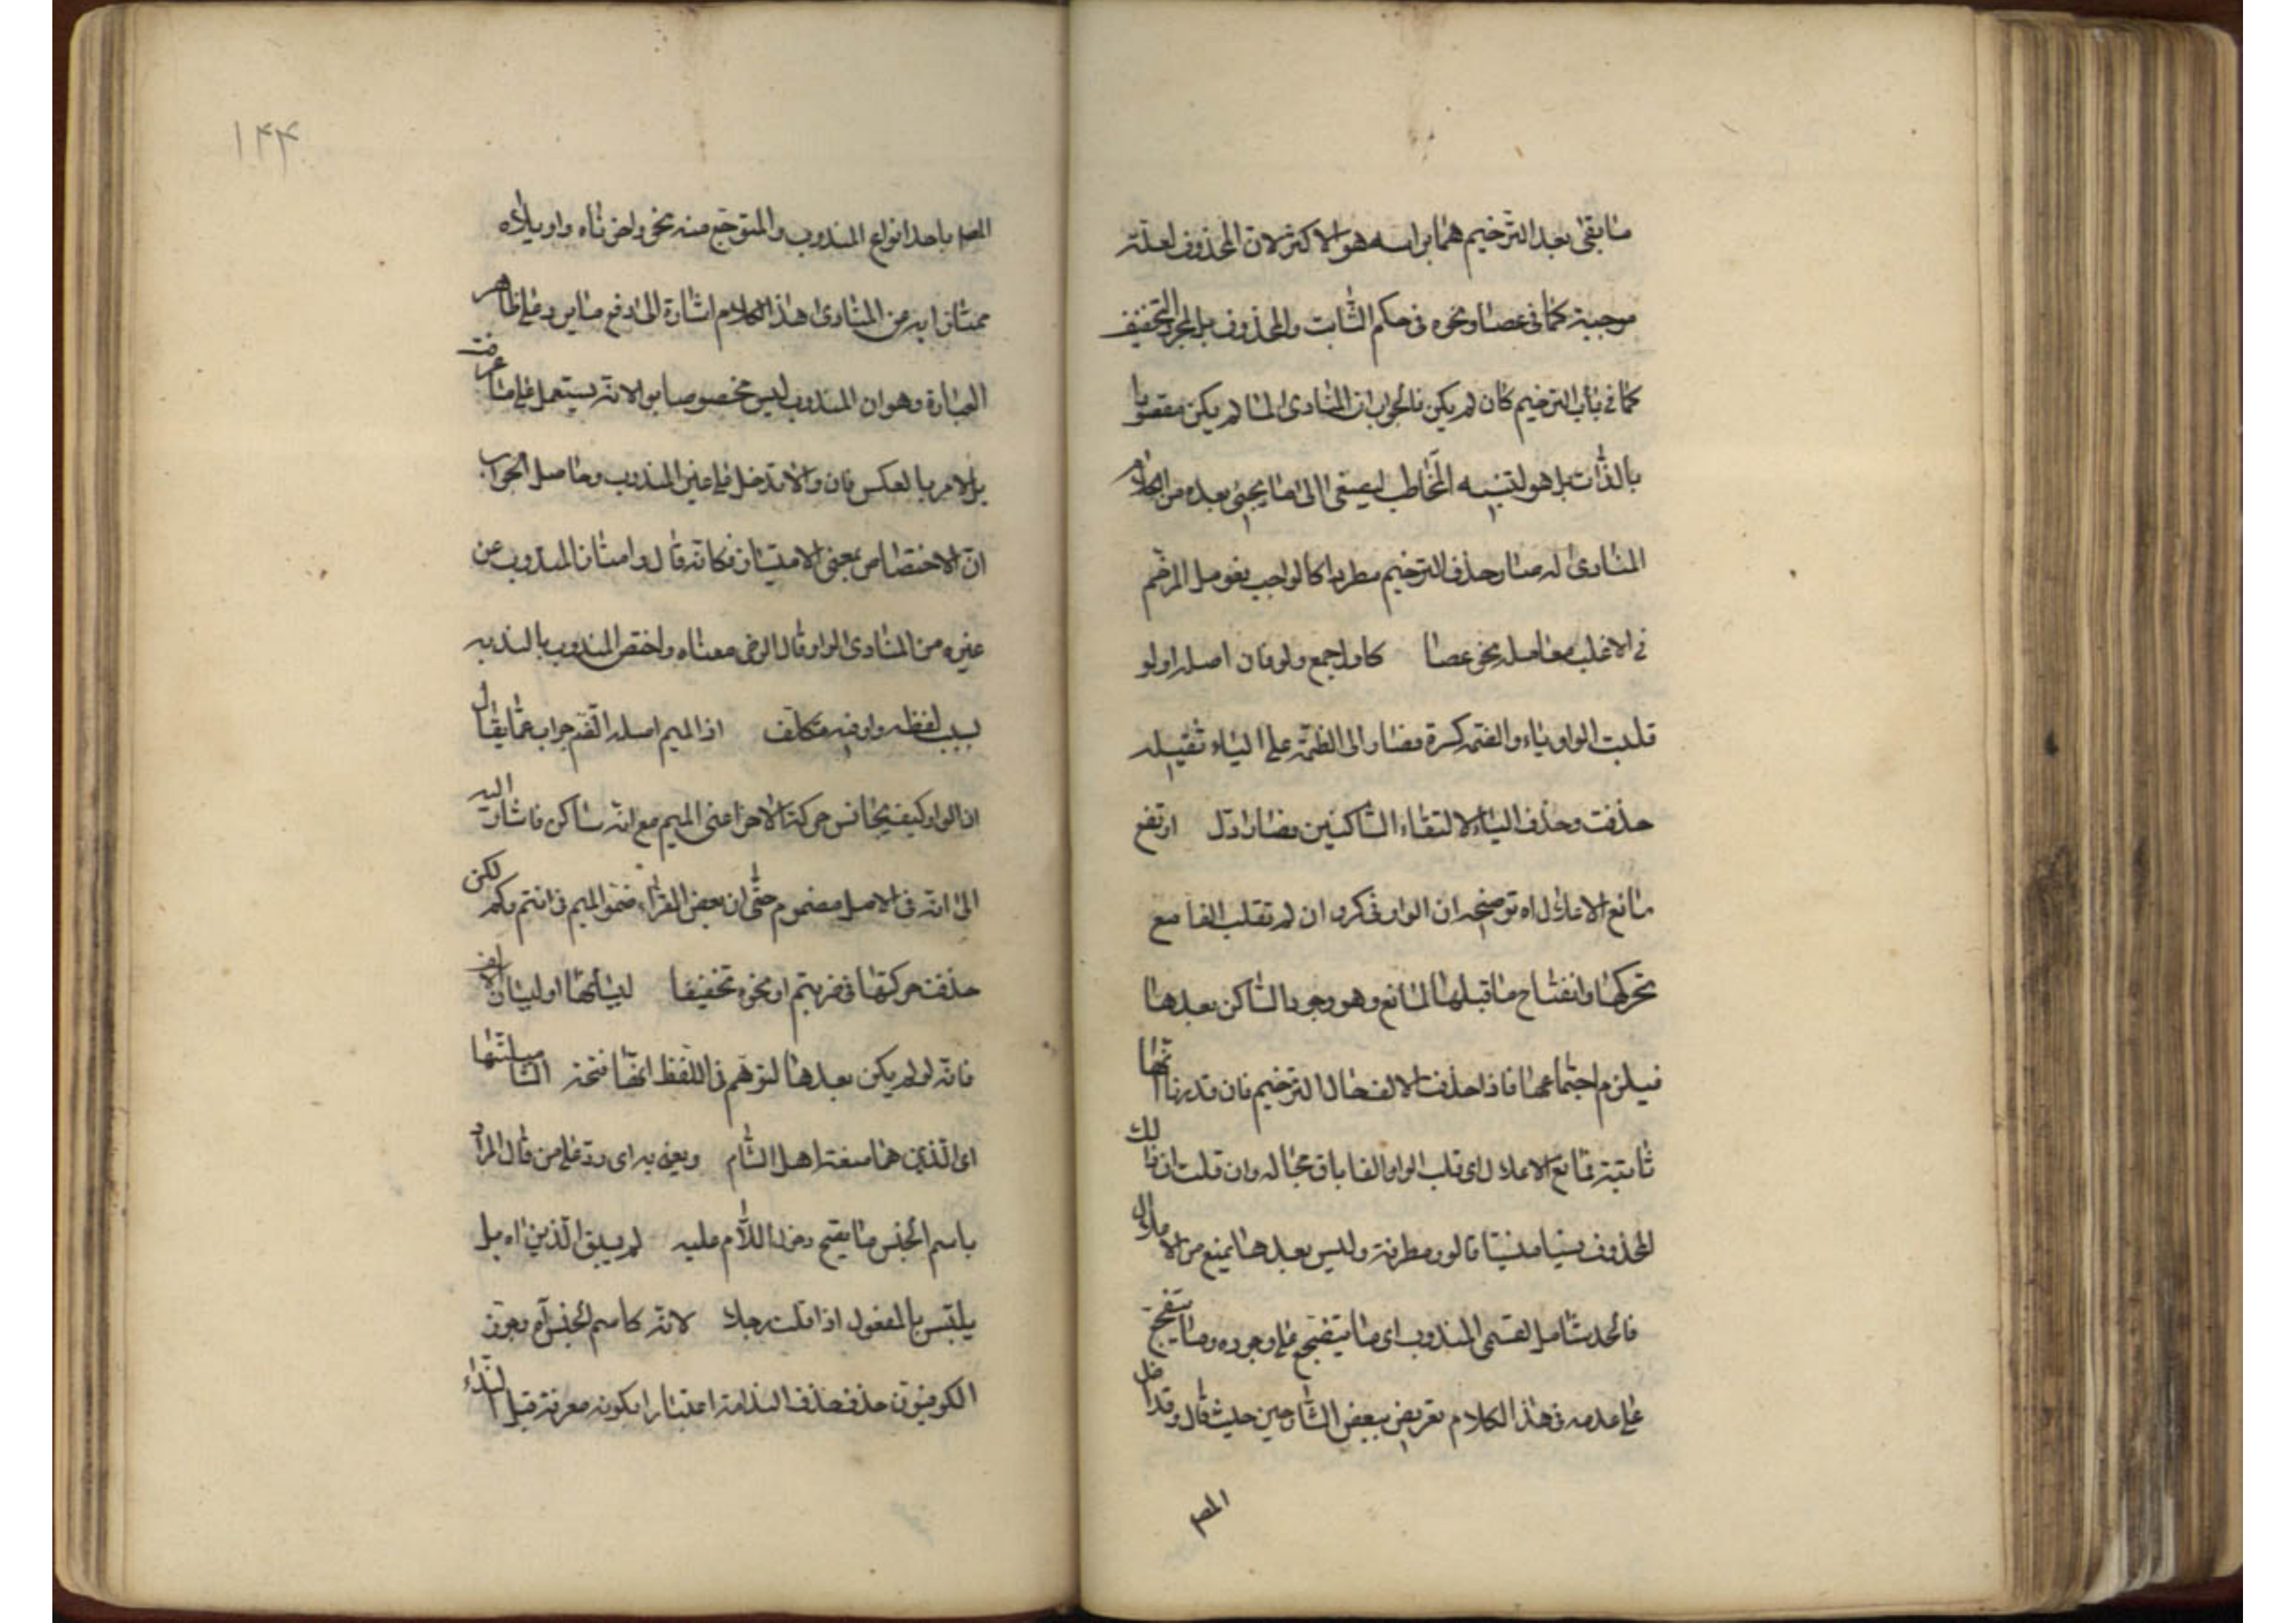 ما بقی بعد الترخیم هما براسه هو الاکثر لان المحذوف لعلة
موجبة کما فی عصا ونحوه فی حکم الثابت والمحذوف بل المجرد التخفیف
کما فی باب الترخیم کان لم یکن فالجواب ان المنادی لما لم یکن مقصودا
بالذات بل هو لتنبیه المخاطب لیصغی الی ما یجیئ بعده من الکلام
المنادی له صار حذف الترخیم مطردا کالواجب فعومل المرخم
فی الاغلب معاملة نحو عصا کاول جمع ولو فان اصله اولو
قلبت الواو یاء والضمة کسرة فصار الی الضمة علی الیاء ثقیلة
حذفت وحذف الیاء لالتقاء الساکنین فصار ادل ارتفع
مانع الاعلال اه توضیحه ان الواو فی کروان لم تقلب الفا مع
تحرکها وانفتاح ما قبلها لمانع وهو وجود الساکن بعدها
فیلزم اجتماعهما فاذا حذفت الالف حال الترخیم فان قدرنا انها
ثابتة فمانع الاعلال ای قلب الواو الفا باق بحاله وان قلت ان ذلک
المحذوف نسیا منسیا فالواو مطرفة ولیس بعدها یمنع من الاعلال
فالحد شامل لقسمی المندوب ای ما یتفجع علی وجوده وما یتفجع
علی عدمه فی هذا الکلام تعریض ببعض الشارحین حیث قال وقد اخل
المص
۱۴۴
المص باحد انواع المندوب والمتوجع منه نحو واحزناه واویلاه
ممتازا به عن المنادی هذا الکلام اشارة الی دفع ما یرد علی ظاهر
العبارة وهو ان المندوب لیس مخصوصا بوا لانه یستعمل علی ما عرفت
بل الامر بالعکس فان وا لا تدخل علی غیر المندوب وحاصل الجواب
ان الاختصاص بمعنی الامتیاز فکانه قال وامتاز المندوب عن
غیره من المنادی الواو قال الرضی معناه واختص المندوب بالندبة
بسبب لفظه وا وفیه تکلف اذ المیم اصله الضم جواب عما یقال
ان الواو کیف یجانس حرکة الاخر اعنی المیم مع انه ساکن فاشارت الیه
الی انه فی الاصل مضموم حتی ان بعض القراء ضمو المیم فی انتم وکم لکن
حذفت حرکتها فی ضربتم او نحوه تخفیفا لبیانها او لبیان الالف
فانه لو لم یکن بعدها لتوهم فی اللفظ انها فتحة التا مبلتها
ای الذین هما صفة اهل الشام ویعنی به ای رد علی من قال المراد
باسم الجنس ما یقبح دخول اللام علیه لم یبق الذین اه بل
یلتبس بالمفعول اذا قلت رجلا لانه کاسم الجنس اه وجوز
الکوفیون حذف حذف الندامة اعتبارا بکونه معرفة قبل النداء